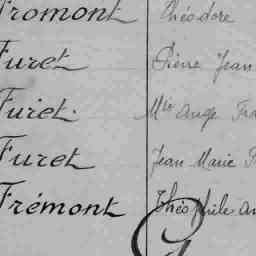 Fromont Théodore
Furet Pierre Jean
Furet. Mie Ange Fra
Furet Jean Marie F
Frémont Théophile an